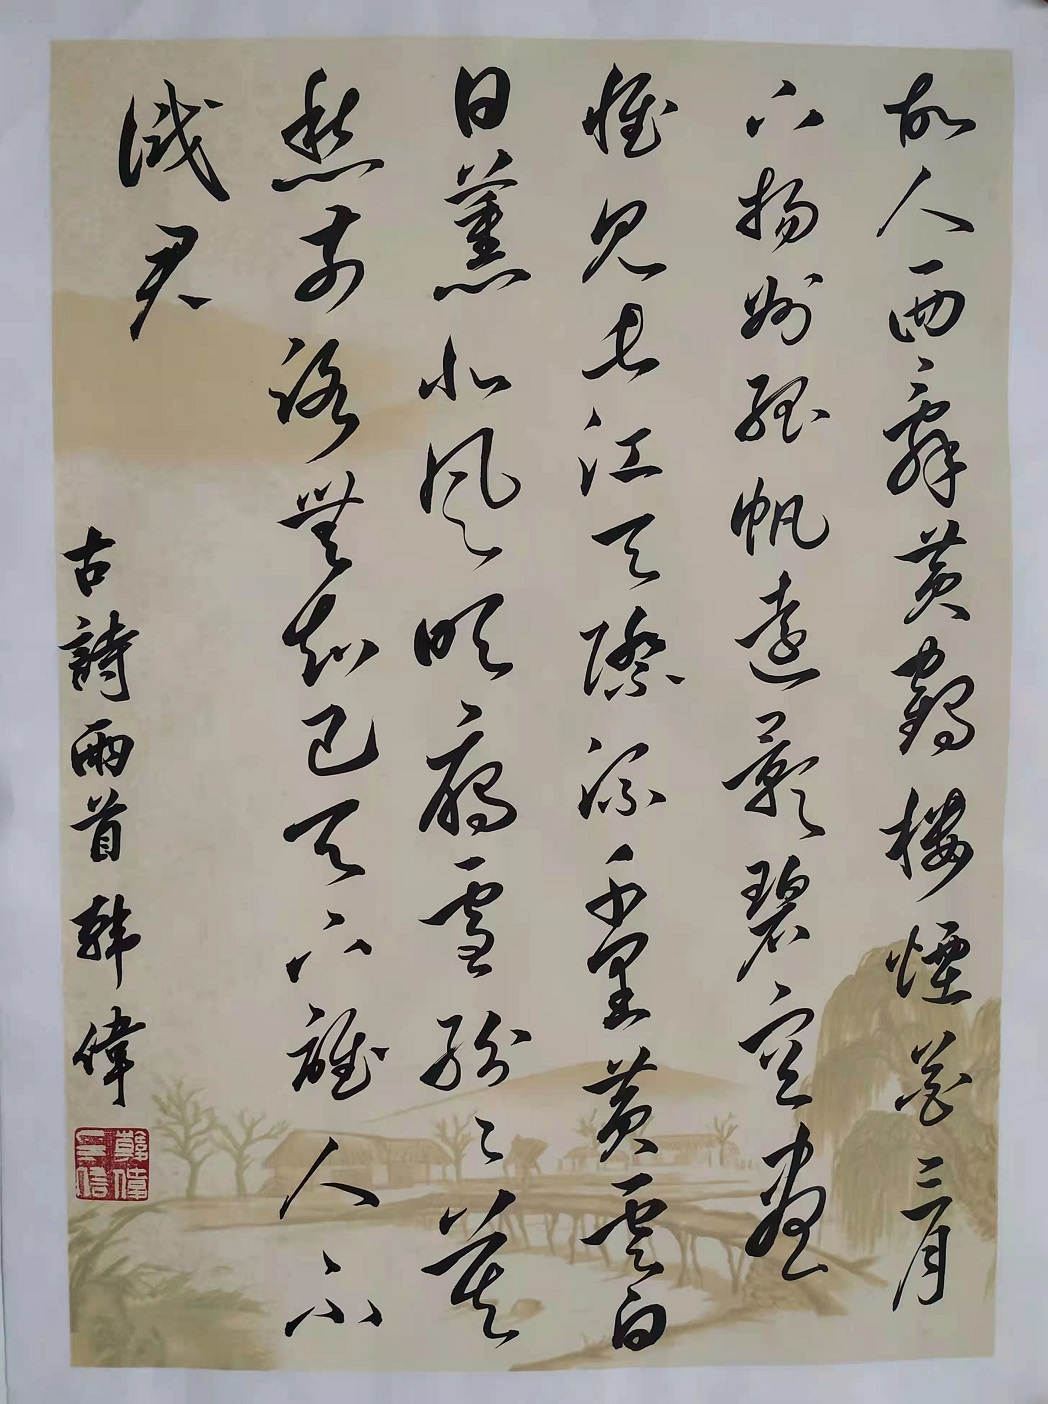 故人西辭黃鶴樓煙花三月
下揚州孤帆遠影碧空盡
惟見長江天際流千里黃雲白
日薰北風吹雁雪紛々莫
愁前路無知己天下誰人不
識君
古詩兩首韓偉
韓偉信